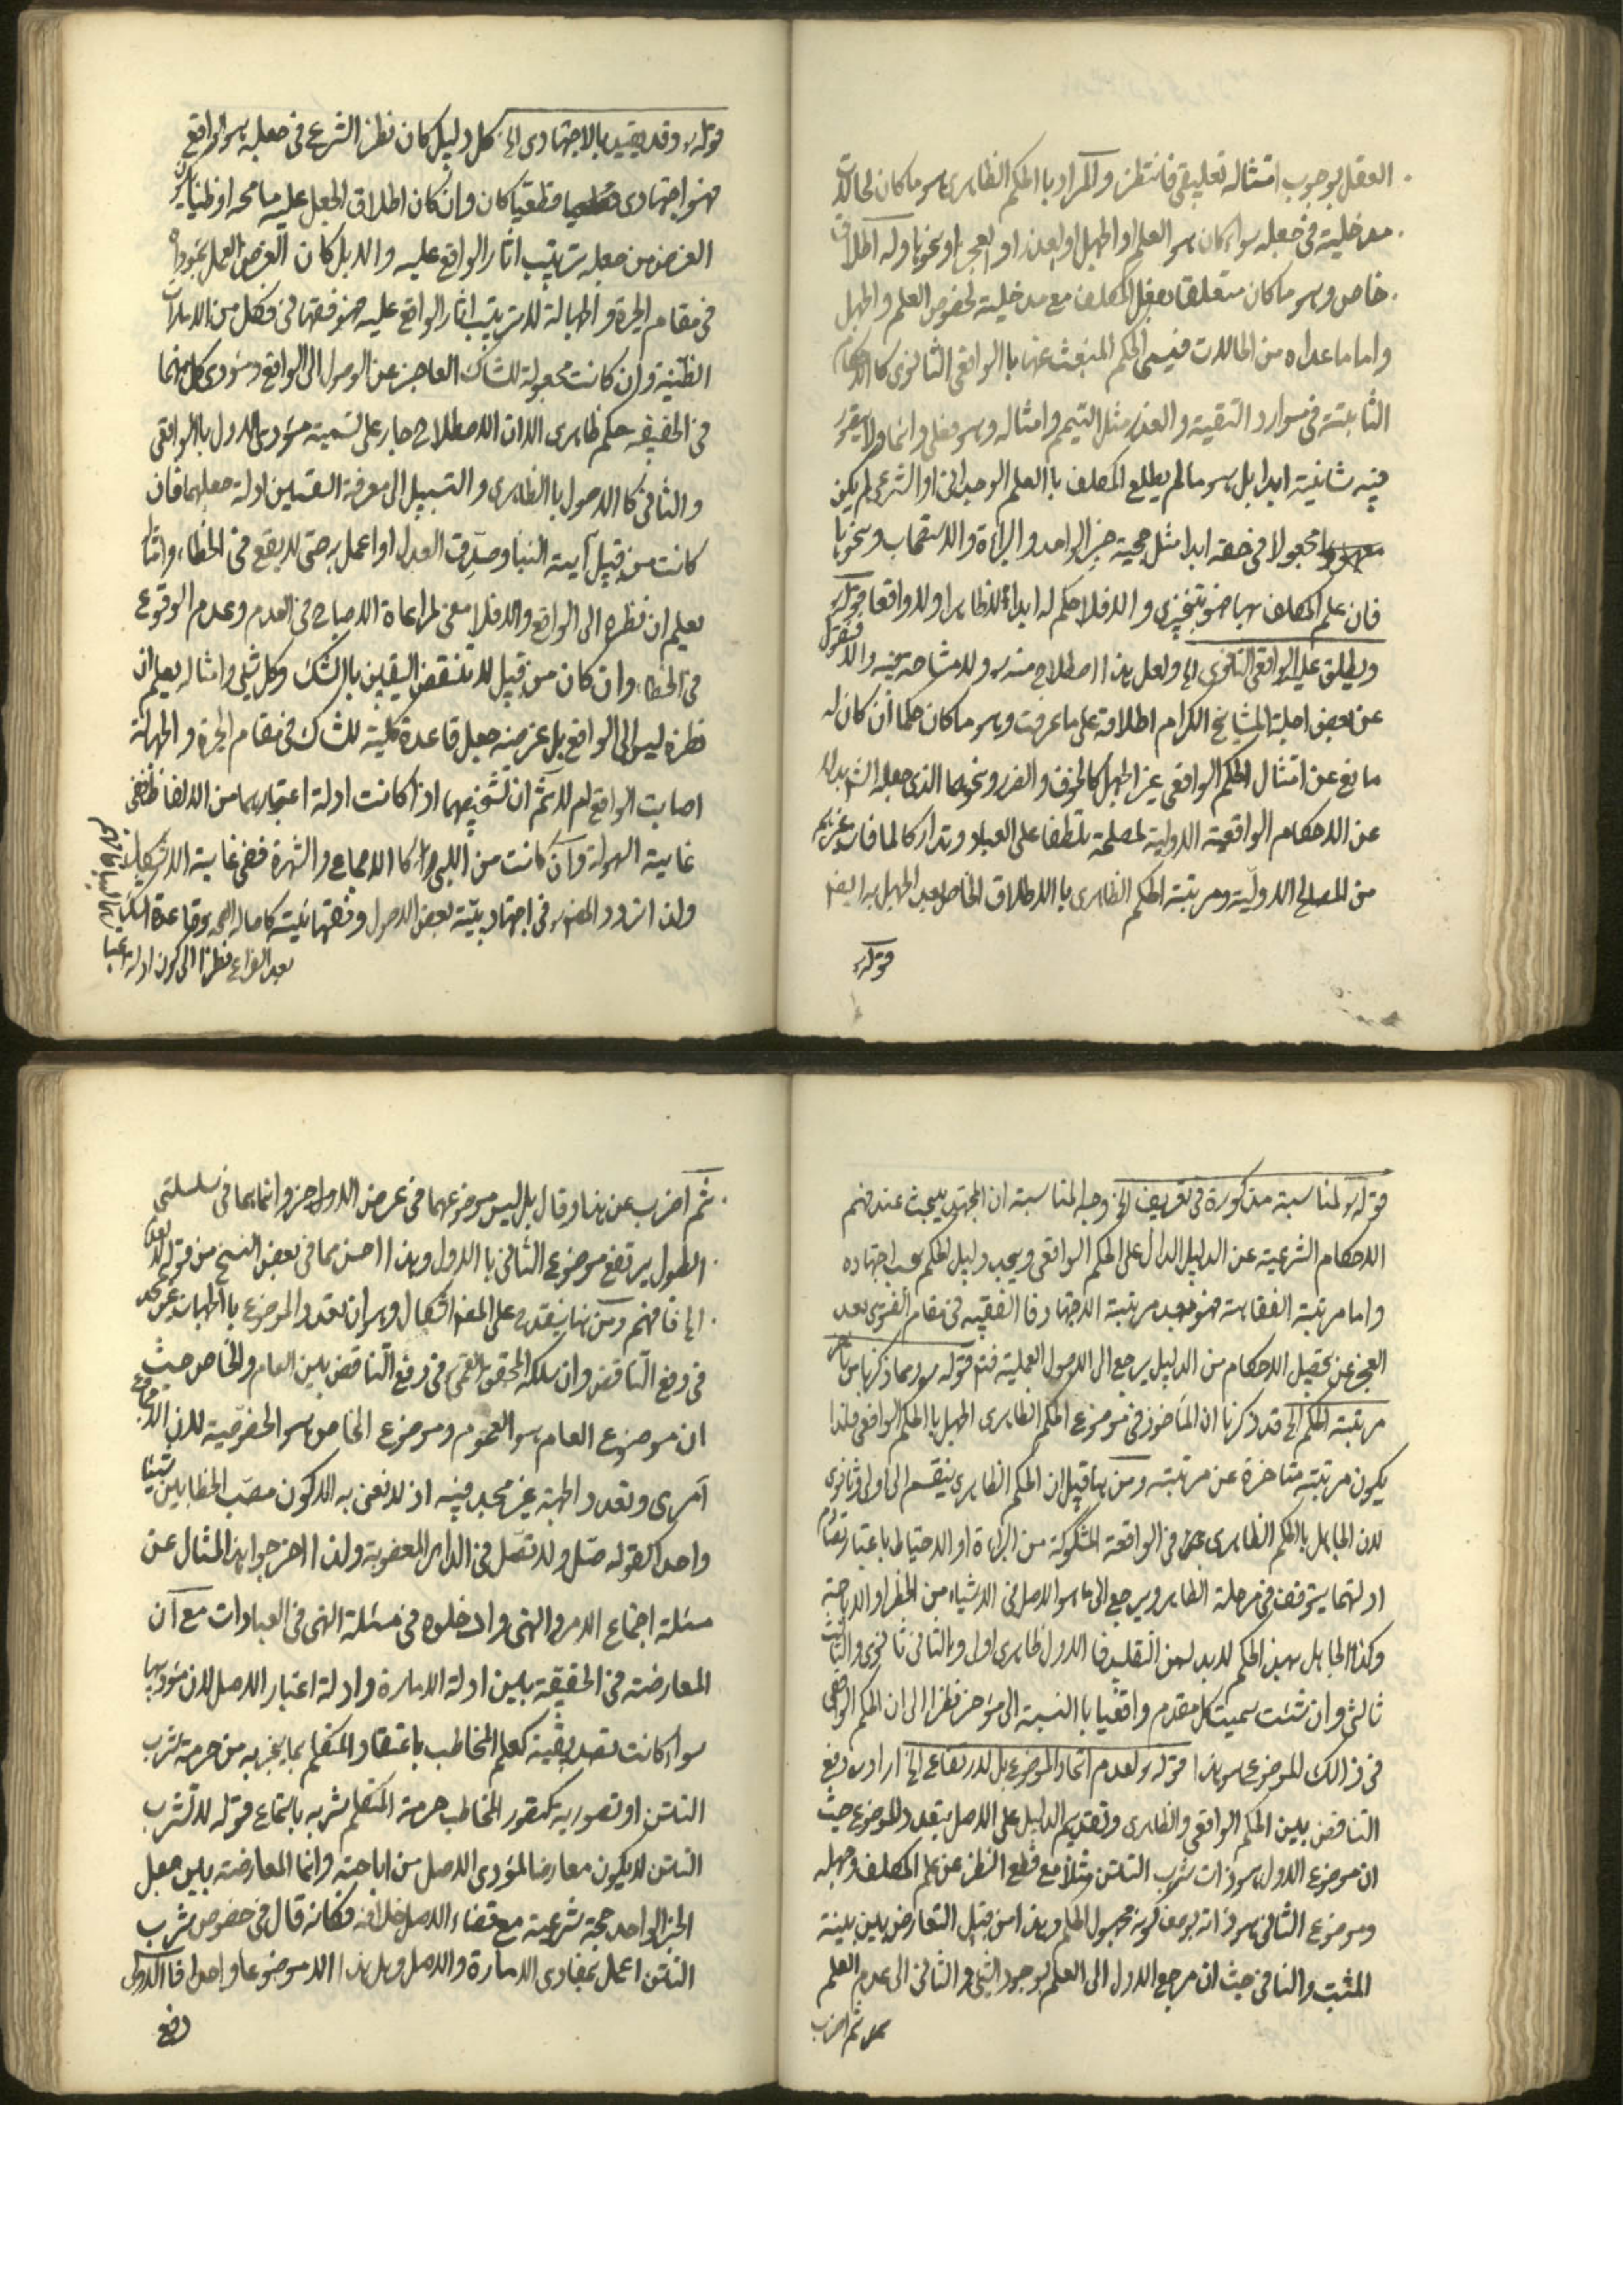 العقل بوجوب امتثاله تعليقى فانتظر والمراد با الحكم الظاهرى هو ما كان لحالات
مدخلية فى جعله سواء كان هو العلم او الجهل او العذر او العجز او نحوها وله اطلاق
خاص وهو ما كان متعلقا بفعل المكلف مع مدخلية لخصوص العلم والجهل
واما ما عداه من الحالات فيسمى الحكم المنبعث عنها با الواقعى الثانوى كا الاحكام
الثابتة فى موارد التقية والعذر مثل التيمم وامثاله وهو فعلى دائما ولا يتصور
فيه شانية ابدا بل هو ما لم يطلع المكلف با العلم الوجدانى او الشرعى لم يكن
مجعولا فى حقه ابدا مثل حجية خبر الواحد والبراءة والاستصحاب ونحوها
فان علم المكلف بها فهو تنجيزى والا فلا حكم له ابدا لا ظاهرا ولا واقعا قوله
ويطلق عليه الواقعى الثانوى الخ ولعل هذا اصطلاح منه ره ولا مشاحة فيه والا فالمنقول
عن بعض اجلة المشايخ الكرام اطلاقه على ما عرفت وهو ما كان حكما ان كان له
مانع عن امتثال الحكم الواقعى غير الجهل كالخوف والضرر ونحوهما الذى جعله الش بدلا
عن الاحكام الواقعية الاولية لمصلحة تلطفا على العباد وتداركا لما فات عنهم
من المصالح الاولية ومرتبة الحكم الظاهرى با الاطلاق الخاص بعد الجهل به ايضا
قوله
قوله ره وقد يقيد بالاجتهادى الخ كل دليل كان نظر الشرع فى جعله هو الواقع
فهو اجتهادى قطعيا كان وان كان اطلاق الجعل عليه مسامحة او ظنيا
الغرض من جعله ترتيب اثار الواقع عليه والا بل كان الغرض العمل بمؤداه
فى مقام الحيرة والجهالة لا ترتيب اثار الواقع عليه فهو فقهائى فكل من الامارات
الظنية وان كانت مجعولة للشاك العاجز عن الوصول الى الواقع ومؤدى كل منهما
فى الحقيقه حكم ظاهرى الا ان الاصطلاح جار على تسمية مؤدى الاول با الواقعى
والثانى كا الاصول با الظاهرى والسبيل الى معرفة القسمين ادلة جعلهما فان
كانت من قبيل آية النبا وصدّق العدل او اعمل به حتى لا يقع فى الخطاء وامثا
يعلم ان نظره الى الواقع والا فلا معنى لمراعاة الاصباح فى الندم وعدم الوقوع
فى الخطاء وان كان من قبيل لا تنقض اليقين بالشك وكل شئ وامثاله يعلم ان
نظره ليس الى الواقع بل غرضه جعل قاعدة كلية للشاك فى مقام الحيرة والجهالة
اصابت الواقع ام لا ثم ان تشخيصهما اذا كانت ادلة اعتبارهما من الالفاظ ففى
غاية السهولة وان كانت من اللبى كا الاجماع والشهرة ففى غاية الاشكال
ولذا تردد المص ره فى اجتهاديتية بعض الاصول وفقهائيته كاصالة الصحه وقاعدة الشك
بعد الفراغ نظرا الى كون ادلة
قوله ره لمناسبة مذكورة فى تعريف الخ وجه المناسبة ان المجتهد يبحث عند فهم
الاحكام الشرعية عن الدليل الدال على الحكم الواقعى ويجد دليل الحكم بحسب اجتهاده
واما مرتبة الفقاهة فهو بعد مرتبة الاجتهاد فا الفقيه فى مقام الفتوى بعد
العجز عن تحصيل الاحكام من الدليل يرجع الى الاصول العملية فتم قوله ره ومما ذكرنا من تاخر
مرتبة الحكم الخ قد ذكرنا ان الماخوذ فى موضوع الحكم الظاهرى الجهل با الحكم الواقعى فلذا
يكون مرتبته متاخرة عن مرتبته ومن هنا قيل ان الحكم الظاهرى ينقسم الى اولى وثانوى
لان الجاهل با الحكم الظاهرى فى الواقعة المشكوكة من البراءة او الاحتياط باعتبار تصادم
ادلتهما يتوقف فى مرحلة الظاهر ويرجع الى ما هو الاصل فى الاشياء من الحظر او الاباحة
وكذا الجاهل بهذا الحكم لا بد له من التقليد فا الاول ظاهرى اول والثانى ثانوى والثالث
ثالثى وان شئت سميت كل مقدم واقعيا با النسبة الى مؤخر نظرا الى ان الحكم الواقعى
فى ذالك للموضوع هو هذا قوله ره لعدم اتحاد الموضوع بل لارتفاع الخ اراد ره دفع
التناقض بين الحكم الواقعى والظاهرى وتقديم الدليل على الاصل بتعدد الموضوع حيث
ان موضوع الاول هو ذات شرب التتن مثلا مع قطع النظر عن علم المكلف وجهله
وموضوع الثانى هو ذاته بوصف كونه مجهول الحكم وهذا من قبيل التعارض بين بينة
المثبت والنافى حيث ان مرجع الاول الى العلم بوجود الشئ والثانى الى عدم العلم
ثم اضرب
ثم اضرب عن هذا وقال بل ليس موضوعهما فى عرض الاول اخر وانما هما فى سلسلتى
الطول يرتفع موضوع الثانى با الاول وهذا احسن مما فى بعض النسخ من قوله لا
الخ فافهم ومن هنا ينقدح على المص اشكال وهو ان تعدد الموضوع با الجهات غير مجد
فى رفع التناقض وان سلكه المحقق القمى فى رفع التناقض بين العام والخاص حيث
ان موضوع العام هو العموم وموضوع الخاص هو الخصوصية لان الاجتماع
آمرى وتعدد الجهة غير مجد فيه اذ لا نعنى به الا كون مصب الخطابين شيئا
واحدا كقوله صل ولا تصل فى الدار المغصوبة ولذا اخرجوا هذا المثال عن
مسئلة اجتماع الامر والنهى وادخلوه فى مسئلة النهى فى العبادات مع ان
المعارضة فى الحقيقة بين ادلة الامارة وادلة اعتبار الاصل لان مؤديها
سواء كانت تصديقية كعلم المخاطب باعتقاد المتكلم بما يخبر به من حرمة شرب
التتن او تصورية كتصور المخاطب حرمة المتكلم شربه باستماع قوله لا تشرب
التتن لا يكون معارضا لمؤدى الاصل من اباحته وانما المعارضة بين جعل
الخبر الواحد حجة شرعية مع قضاء الاصل خلافه فكانه قال فى خصوص شرب
التتن اعمل بمفادى الامارة والاصل وهل هذا الا موضوعا واحدا فا الاولى
دفع